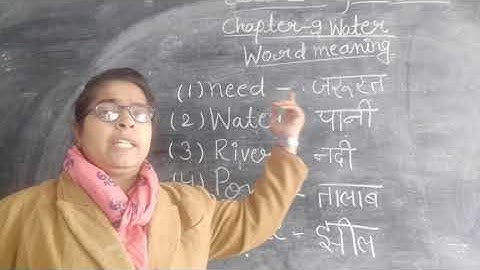 Chapter-9 Water
Word meaning
(1) need - जरूरत
(2) Water - पानी
(3) River - नदी
(4) - तालाब
- झील